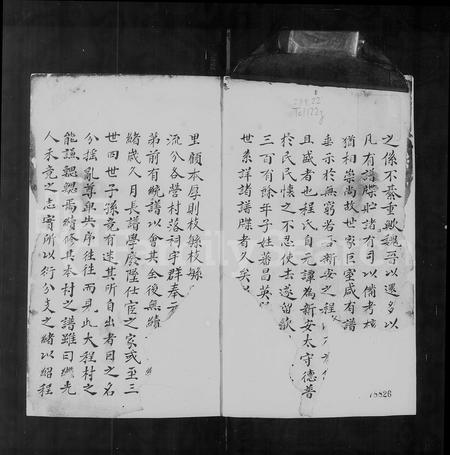 之係不綦重歟魏晉以還多以
凡有譜牒貯諸有司以備考核
猶相崇尚故世家巨室咸有譜
垂示於無窮若吾新安之程
且盛者也程氏自元譚為新安太守德普
於民民懷之不忍使去遂留歙
三百有餘年子姓蕃昌英
世系詳諸譜牒者久矣
里顧本厚則枝繁枝繁
流分各營村落祠宇群奉
弟前有統譜以會其全後無續
緒歲久月長譜學廢墜仕宦之家或至三
世四世子孫竟有迷其所自出者因之名
分搖亂尊卑失序往往而見此大程村之
能謙翽翽焉續修其本村之譜雖曰繼先
人未竟之志實所以衍分支之緒以紹程
78826